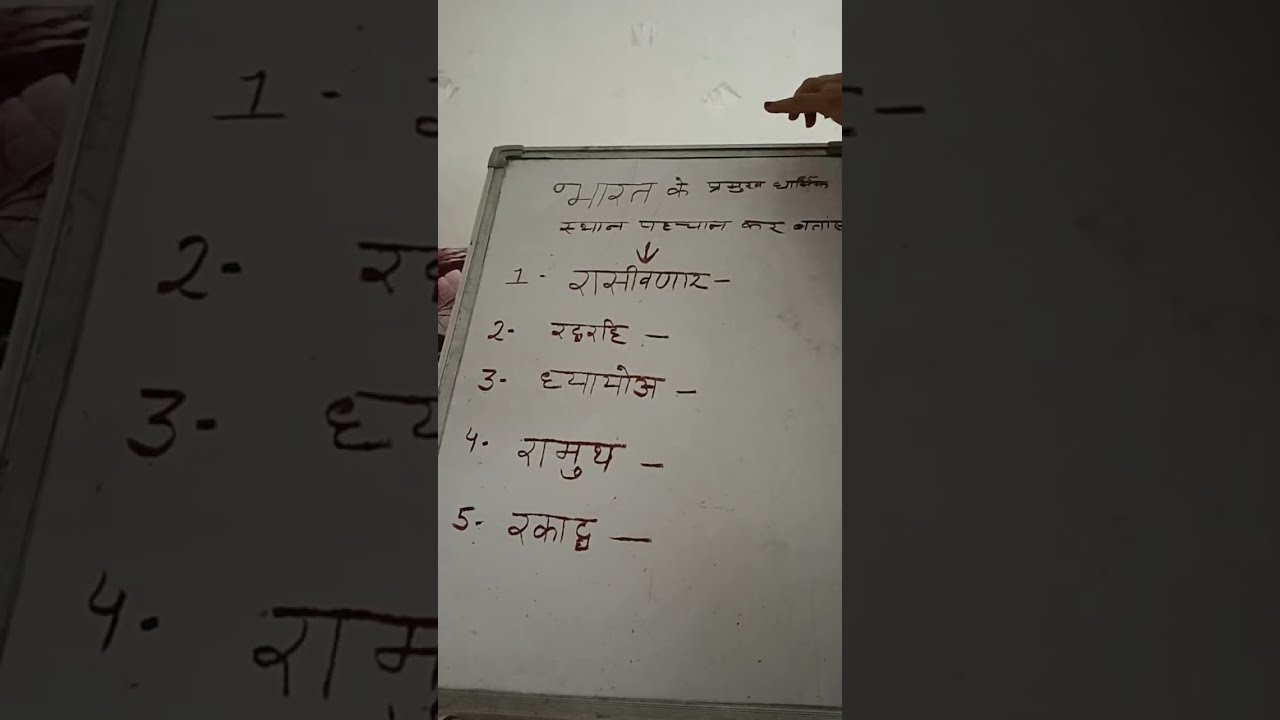 भारत के प्रमुख धार्मिक
स्थान पहचान कर बताए
↓
1 - रासीवणार -
2- रद्वरहि -
3- ध्यायोअ -
4- रामुथ -
5- रकाद्व -